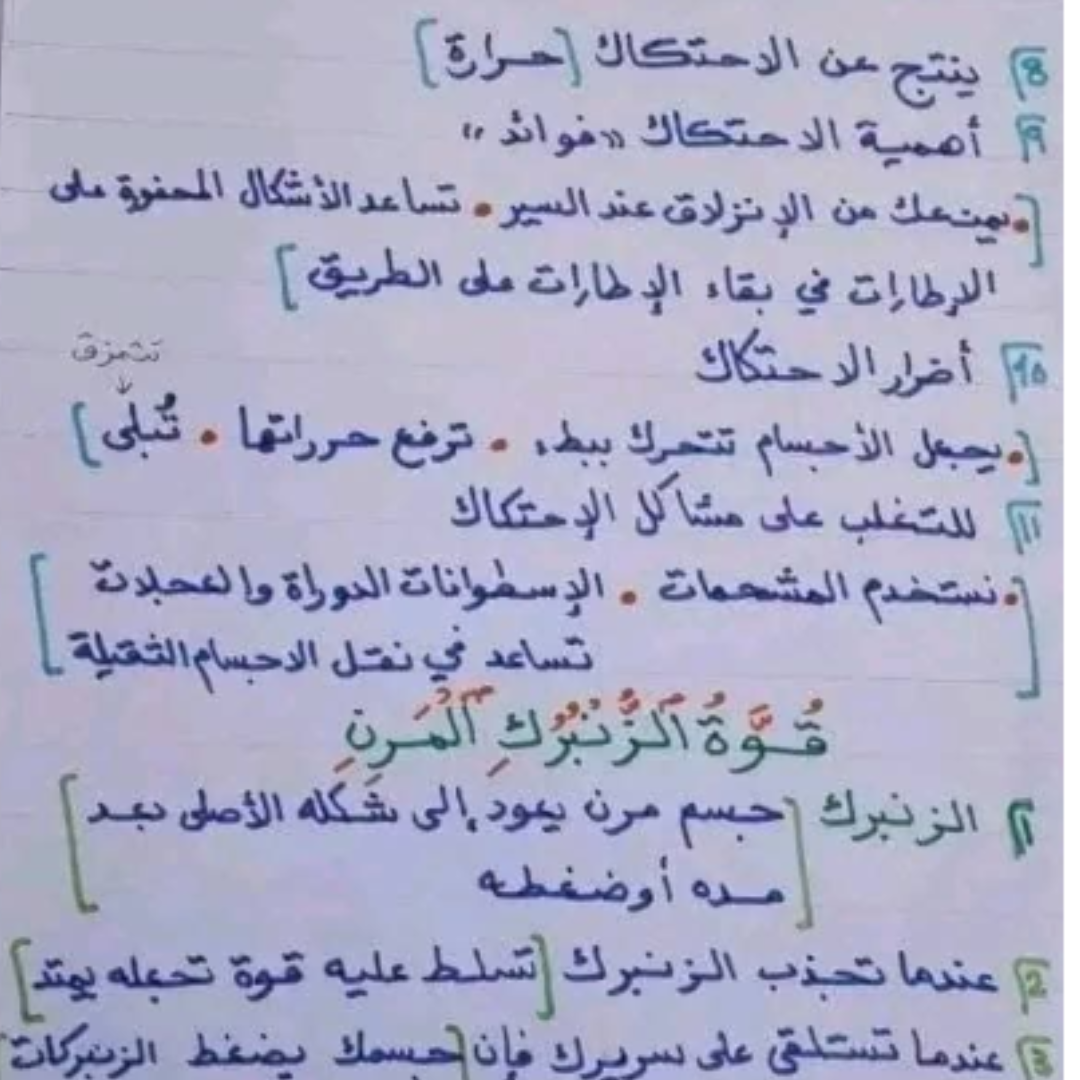 8] ينتج عن الاحتكاك [حرارة]
9] أهمية الاحتكاك «فوائد»
[• يمنعك من الإنزلاق عند السير • تساعد الأشكال المحفورة على
الإطارات في بقاء الإطارات على الطريق]
10] أضرار الاحتكاك
تتمزق
↓
[• يجعل الأجسام تتحرك ببطء • ترفع حرراتها • تُبلى]
11] للتغلب على مشاكل الإحتكاك
[• نستخدم المشحمات • الإسطوانات الدوراة والعجلات
تساعد في نقل الاجسام الثقيلة]
قُوَّةُ الزُّنْبُرُكِ الْمَرِنِ
1] الزنبرك [جسم مرن يعود إلى شكله الأصلى بعد
مده أوضغطه]
2] عندما تجذب الزنبرك [تسلط عليه قوة تجعله يمتد]
3] عندما تستلقي على سريرك فإن [جسمك يضغط الزنبركات